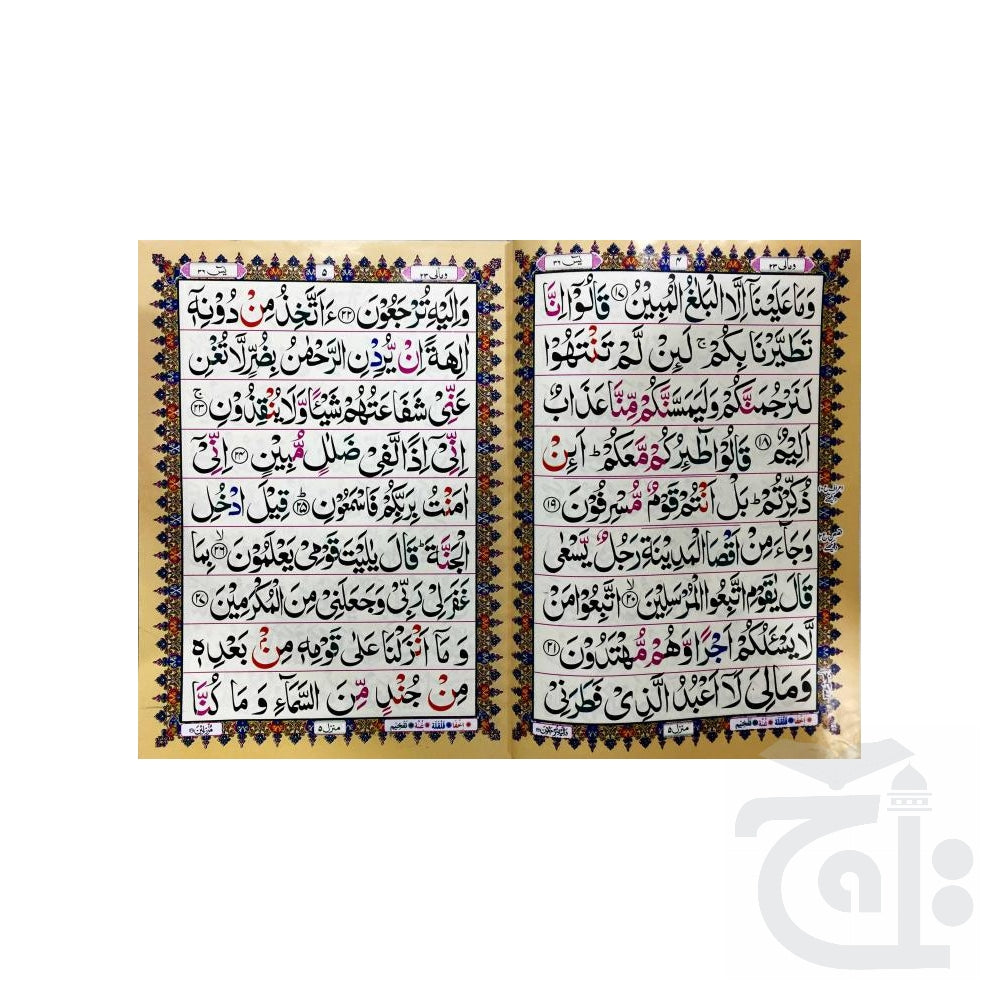 ومالی ۲۳
۴
یٰسٓ ۳۶
وَمَا عَلَيْنَآ اِلَّا الْبَلٰغُ الْمُبِيْنُ ﴿۱۷﴾ قَالُوْٓا اِنَّا
تَطَيَّرْنَا بِكُمْ ۚ لَئِنْ لَّمْ تَنْتَهُوْا
لَنَرْجُمَنَّكُمْ وَلَيَمَسَّنَّكُمْ مِّنَّا عَذَابٌ
اَلِيْمٌ ﴿۱۸﴾ قَالُوْا طَآئِرُكُمْ مَّعَكُمْ ؕ اَئِنْ
ذُكِّرْتُمْ ؕ بَلْ اَنْتُمْ قَوْمٌ مُّسْرِفُوْنَ ﴿۱۹﴾
وَجَآءَ مِنْ اَقْصَا الْمَدِيْنَةِ رَجُلٌ يَّسْعٰى
قَالَ يٰقَوْمِ اتَّبِعُوا الْمُرْسَلِيْنَ ۙ﴿۲۰﴾ اتَّبِعُوْا مَنْ
لَّا يَسْـَٔلُكُمْ اَجْرًا وَّهُمْ مُّهْتَدُوْنَ ﴿۲۱﴾
وَمَالِيَ لَآ اَعْبُدُ الَّذِيْ فَطَرَنِيْ
منزل ۵
ومالی ۲۳
۵
یٰسٓ ۳۶
وَاِلَيْهِ تُرْجَعُوْنَ ﴿۲۲﴾ ءَاَتَّخِذُ مِنْ دُوْنِهٖٓ
اٰلِهَةً اِنْ يُّرِدْنِ الرَّحْمٰنُ بِضُرٍّ لَّا تُغْنِ
عَنِّيْ شَفَاعَتُهُمْ شَيْـًٔا وَّلَا يُنْقِذُوْنِ ۚ﴿۲۳﴾
اِنِّيْٓ اِذًا لَّفِيْ ضَلٰلٍ مُّبِيْنٍ ﴿۲۴﴾ اِنِّيْٓ
اٰمَنْتُ بِرَبِّكُمْ فَاسْمَعُوْنِ ؕ﴿۲۵﴾ قِيْلَ ادْخُلِ
الْجَنَّةَ ؕ قَالَ يٰلَيْتَ قَوْمِيْ يَعْلَمُوْنَ ۙ﴿۲۶﴾ بِمَا
غَفَرَ لِيْ رَبِّيْ وَجَعَلَنِيْ مِنَ الْمُكْرَمِيْنَ ﴿۲۷﴾
وَمَآ اَنْزَلْنَا عَلٰى قَوْمِهٖ مِنْۢ بَعْدِهٖ
مِنْ جُنْدٍ مِّنَ السَّمَآءِ وَمَا كُنَّا
منزل ۵